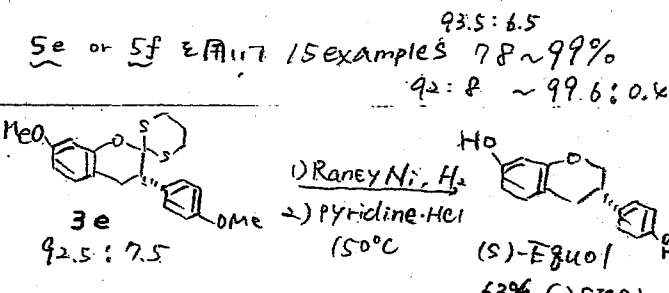 93.5 : 6.5
5e or 5f を用いて 15 examples 78~99%
92 : 8 ~ 99.6 : 0.4
MeO
O
S
S
OMe
3e
92.5 : 7.5
1) Raney Ni, H2
2) pyridine·HCl
150°C
HO
O
(S)-Equol
63%